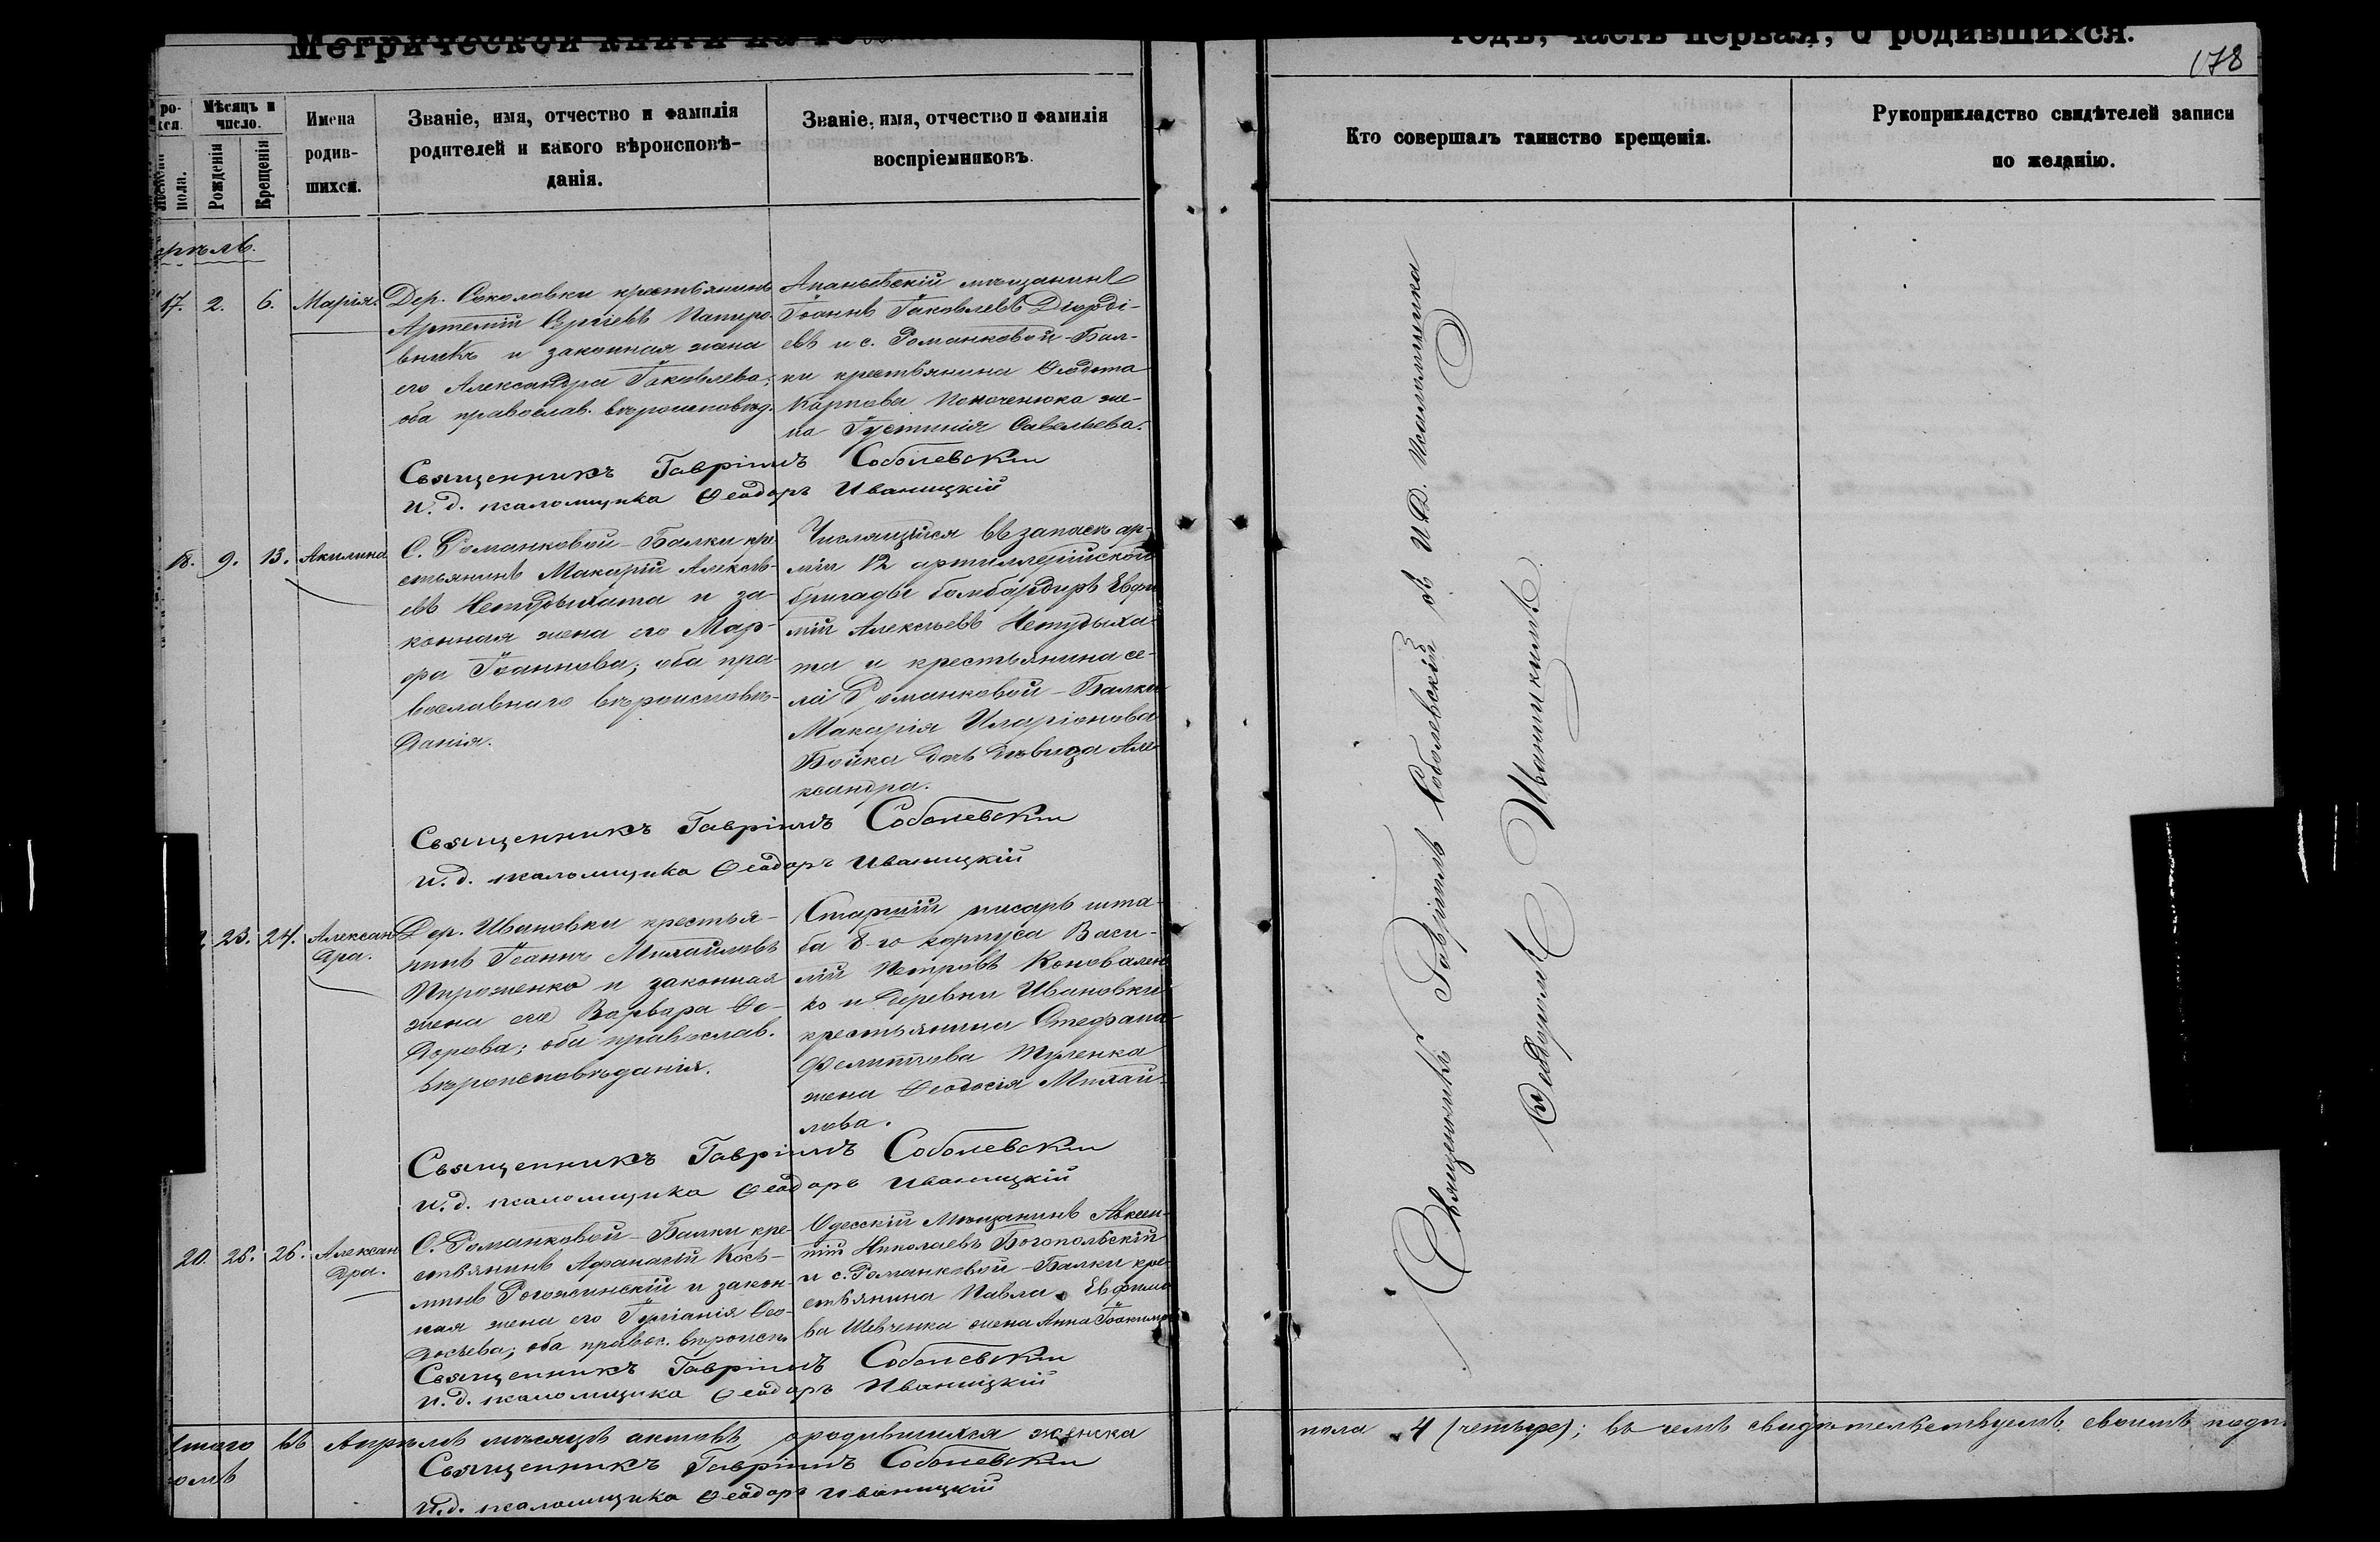 Метрической книги на 18
годъ, часть первая, о родившихся.
178
Мѣсяцъ и число.
Рожденія
Крещенія
пола.
Имена родив-
шихся.
Званіе, имя, отчество и фамилія
родителей и какого вѣроисповѣ-
данія.
Званіе, имя, отчество и фамилія
воспріемниковъ.
Кто совершалъ таинство крещенія.
Рукоприкладство свидѣтелей записи
по желанію.
17. 2. 6. Марія.
Дер. Соколовки крестьянинъ
Артемій Сергіевъ Папиро-
вникъ и законная жена
его Александра Іаковлева;
оба православ. вѣроисповѣд.
Ананьевскій мѣщанинъ
Іоаннъ Іаковлевъ Діорді-
евъ и с. Романковой-Бал-
ки крестьянина Ѳеодота
Карпова Поноченюка же-
на Іустинія Савельева.
Священникъ Гавріилъ Соболевскій
и. д. псаломщика Ѳеодоръ Иваницкій
18. 9. 13. Акилина
С. Романковой-Балки кре-
стьянинъ Макарій Алексѣ-
евъ Нетудыхата и за-
конная жена его Мар-
фа Іоаннова; оба пра-
вославнаго вѣроисповѣ-
данія.
Числящійся въ запасѣ ар-
міи 12 артиллерійской
бригады бомбардиръ Евфи
мій Алексѣевъ Нетудыха-
та и крестьянина се-
ла Романковой-Балки
Макарія Иларіонова
Бойка дочь дѣвица Але
ксандра.
Священникъ Гавріилъ Соболевскій
и. д. псаломщика Ѳеодоръ Иваницкій
23. 24. Алексан
дра.
Дер. Ивановки крестья-
нинъ Іоаннъ Михайловъ
Пироженко и законная
жена его Варвара Ѳе-
дорова; оба православ.
вѣроисповѣданія.
Старшій писарь шта-
ба 8-го корпуса Васи-
лій Петровъ Коновален
ко и деревни Ивановки
крестьянина Стефана
Филиппова
жена Ѳеодосія Михай-
лова.
Священникъ Гавріилъ Соболевскій
и. д. псаломщика Ѳеодоръ Иваницкій
20. 26. Алексан
дра.
С. Романковой-Балки кре-
стьянинъ Афанасій Кось-
минъ Рогожинскій и закон-
ная жена его Іуліанія Ѳео-
досьева; оба правос. вѣроисп.
Одесскій мѣщанинъ Авксен-
тій Николаевъ Богопольскій
и с. Романковой-Балки кре-
стьянина Павла Евфимо
ва Шевченка жена Анна Іоакимо
Священникъ Гавріилъ Соболевскій
и. д. псаломщика Ѳеодоръ Иваницкій
Итого въ Апрѣлѣ мѣсяцѣ актовъ о родившихся женска
пола 4 (четыре); въ чемъ свидѣтельствуемъ своимъ подп.
Священникъ Гавріилъ Соболевскій
И.д. псаломщика Ѳеодоръ Иваницкій
Священникъ Гавріилъ Соболевскій съ И.Д. Псаломщика
Ѳеодоромъ Иваницкимъ